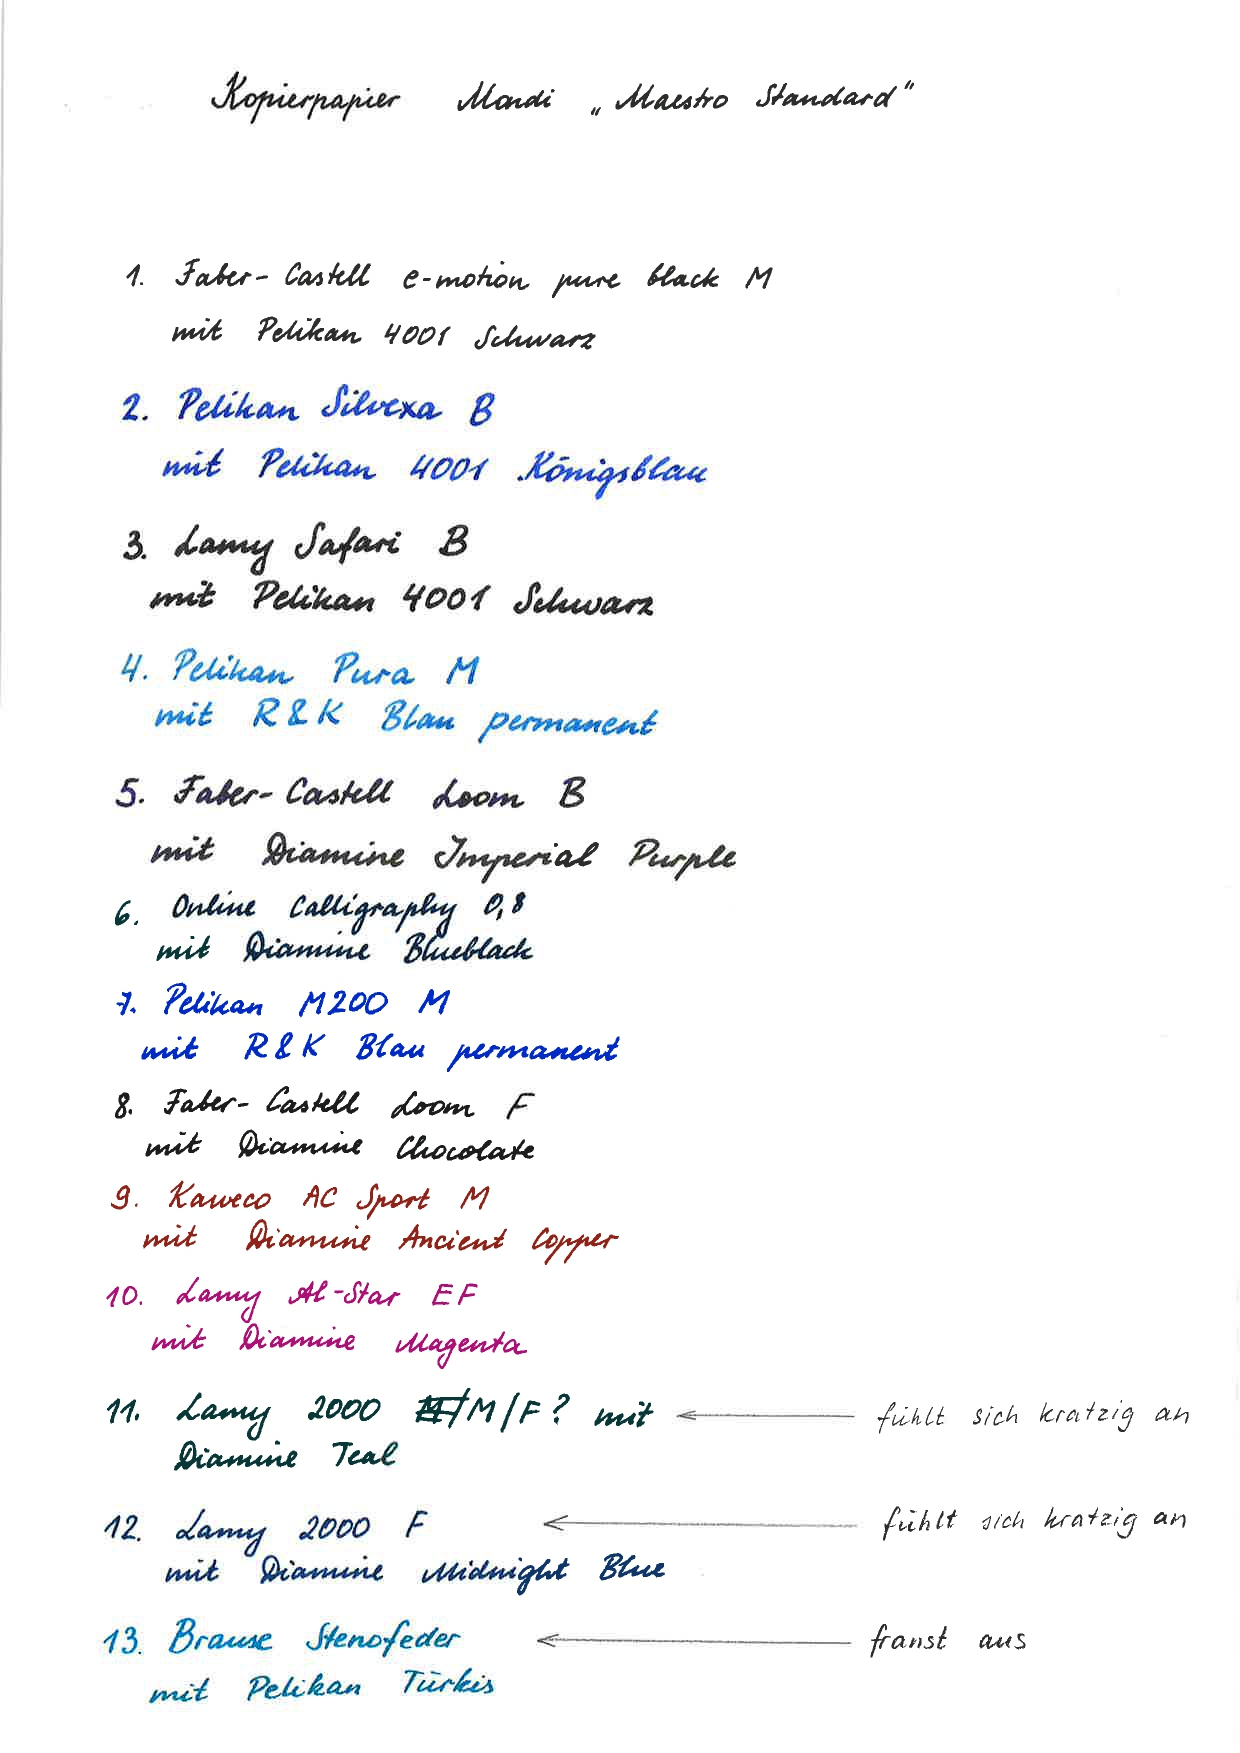 Kopierpapier Mondi „Maestro Standard“
1. Faber-Castell e-motion pure black M
mit Pelikan 4001 Schwarz
2. Pelikan Silvexa B
mit Pelikan 4001 Königsblau
3. Lamy Safari B
mit Pelikan 4001 Schwarz
4. Pelikan Pura M
mit R&K Blau permanent
5. Faber-Castell Loom B
mit Diamine Imperial Purple
6. Online Calligraphy 0,8
mit Diamine Blueblack
7. Pelikan M200 M
mit R&K Blau permanent
8. Faber-Castell Loom F
mit Diamine Chocolate
9. Kaweco AC Sport M
mit Diamine Ancient Copper
10. Lamy Al-Star EF
mit Diamine Magenta
11. Lamy 2000 M/F? mit ← fühlt sich kratzig an
Diamine Teal
12. Lamy 2000 F ← fühlt sich kratzig an
mit Diamine Midnight Blue
13. Brause Stenofeder ← franst aus
mit Pelikan Türkis